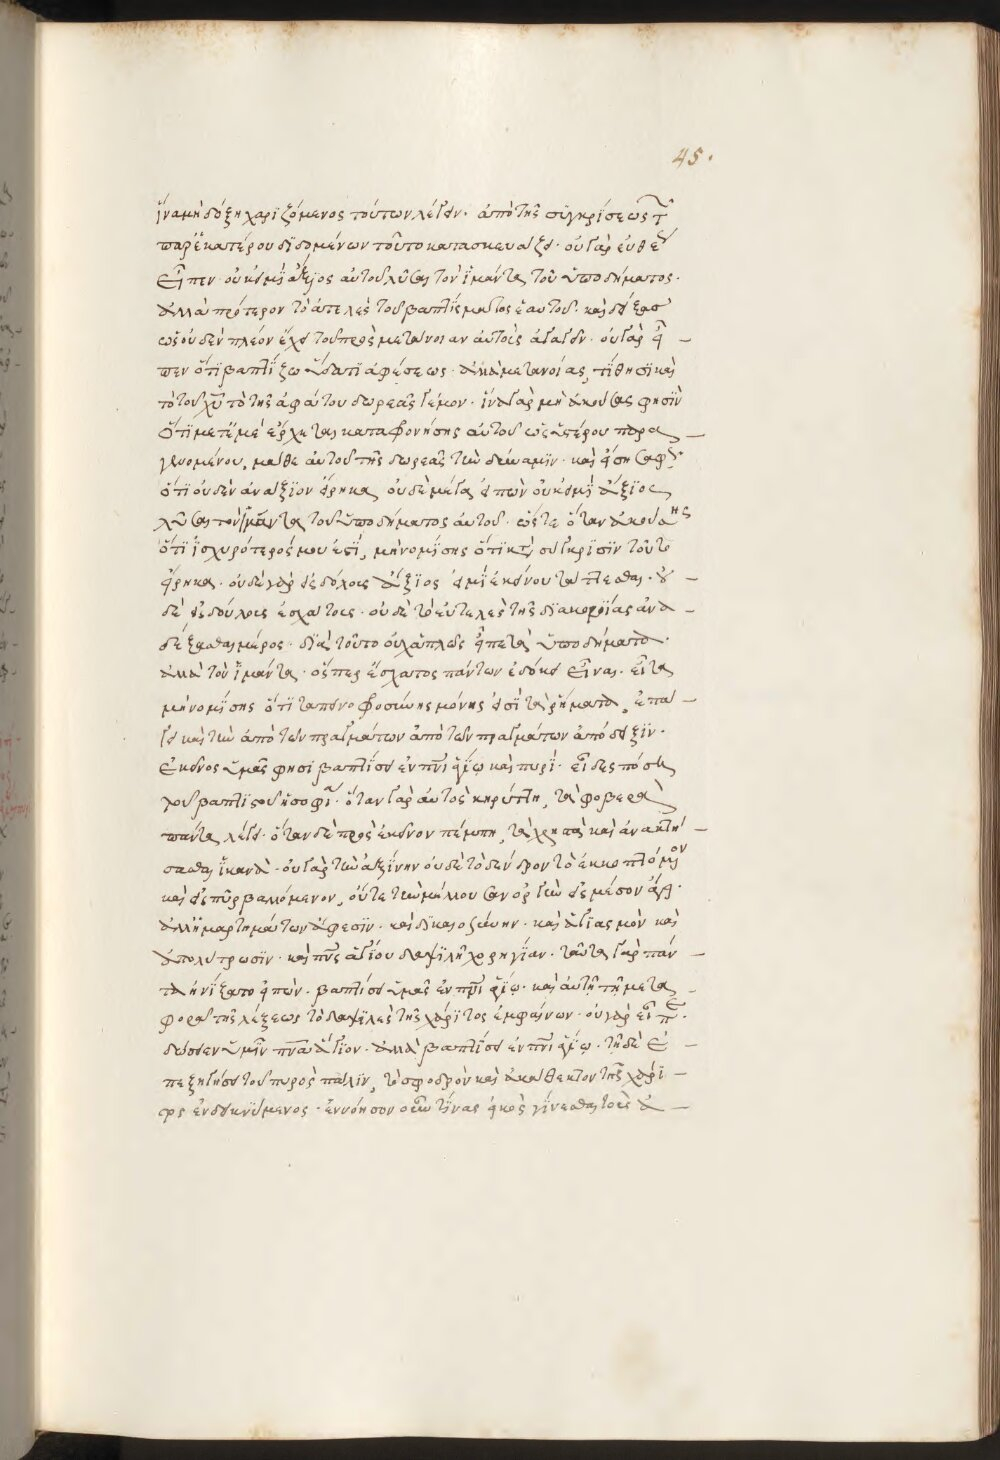 45.
ἵνα μὴ δόξῃ χαριζόμενος τούτων λέγειν· ἀπὸ τῆς συγκρίσεως τῶν
παρ' ἑκατέρου διδομένων τοῦτο κατασκευάζει· οὐ γὰρ εὐθέως
εἶπεν· οὐκ εἰμὶ ἄξιος αὐτοῦ λῦσαι τὸν ἱμάντα τοῦ ὑποδήματος·
ἀλλὰ πρότερον τὸ ἀτελὲς τοῦ βαπτίσματος ἑαυτοῦ· καὶ δείξας
ὡς οὐδὲν πλέον ἔχει τοῦ πρὸς μετάνοιαν αὐτοὺς ἀγαγεῖν· οὐ γὰρ εἶ –
πεν ὅτι βαπτίζω ὕδατι ἀφέσεως· ἀλλὰ μετανοίας, τίθησι καὶ
τὸ τοῦ χῦ τὸ τῆς ἀφάτου δωρεᾶς γέμον· ἵνα γὰρ μὴ ἀκούσας φησὶν
ὅτι μετ' ἐμὲ ἔρχεται καταφρονήσῃς αὐτοῦ ὡς ὑστέρου παρα –
γενομένου, μάθε αὐτοῦ τῆς δωρεᾶς τὴν δύναμιν· καὶ εἴσῃ σαφῶς·
ὅτι οὐδὲν ἀνάξιον εἴρηκα, οὐδὲ μέγα εἰπὼν οὐκ εἰμὶ ἄξιος
λῦσαι τὸν ἱμάντα τοῦ ὑποδήματος αὐτοῦ· ὥστε ὅταν ἀκούσῃς
ὅτι ἰσχυρότερός μου ἐστί, μὴ νομίσῃς ὅτι κατὰ σύγκρισιν τοῦτο
εἴρηκα· οὐδὲ γὰρ εἰς δούλους ἄξιος εἰμὶ ἐκείνου τετάχθαι· οὐ –
δὲ εἰς δούλους ἐσχάτους· οὐδὲ τὸ εὐτελὲς τῆς διακονίας ἀνα
δέξασθαι μέρος· διὰ τοῦτο οὐχ ἁπλῶς εἶπε τὰ ὑποδήματα·
ἀλλὰ τὸν ἱμάντα· ὅσπερ ἔσχατος πάντων ἐδόκει εἶναι· εἶτα
μὴ νομίσῃς ὅτι ταπεινοφροσύνης μόνης εἰσὶ τὰ ῥήματα, ἐπά –
γει καὶ τὴν ἀπὸ τῶν πραγμάτων ἀπὸ τῶν πραγμάτων ἀπόδειξιν·
ἐκεῖνος ὑμᾶς φησὶ βαπτίσει ἐν πνι ἁγίῳ καὶ πυρί· εἶδες πόση
τοῦ βαπτιστοῦ ἡ σοφία· ὅταν γὰρ αὐτὸς κηρύττῃ, τὰ φοβερὰ
πάντα λέγει· ὅταν δὲ πρὸς ἐκεῖνον πέμπῃ, τὰ χρηστὰ καὶ ἀνακτή –
σασθαι ἱκανά· οὐ γὰρ τὴν ἀξίνην οὐδὲ τὸ δένδρον τὸ ἐκκοπτόμενον
καὶ εἰς πῦρ βαλλόμενον, οὔτε τὴν μέλλουσαν ὀργὴν εἰς μέσον ἄγει·
ἀλλ' ἁμαρτημάτων ἄφεσιν· καὶ δικαιοσύνην· καὶ ἁγιασμὸν καὶ
ἀπολύτρωσιν· καὶ πνς ἁγίου δαψιλῆ χορηγίαν· ταῦτα γὰρ πάν –
τα ᾐνίξατο εἰπών· βαπτίσει ὑμᾶς ἐν πνι ἁγίῳ· καὶ αὐτῇ τῇ μετα –
φορᾷ τῆς λέξεως τὸ δαψιλὲς τῆς χάριτος ἐμφαίνων· οὐ γὰρ εἶπε·
δώσει ὑμῖν πνα ἅγιον· ἀλλὰ βαπτίσει ἐν πνι ἁγίῳ· τῇ δὲ ἐ –
πεξηγήσει τοῦ πυρὸς πάλιν, τὸ σφοδρὸν καὶ ἀκάθεκτον τῆς χάρι –
τος ἐνδεικνύμενος· ἐννόησον οὖν τίνας εἰκὸς γίνεσθαι τοὺς ἀ –